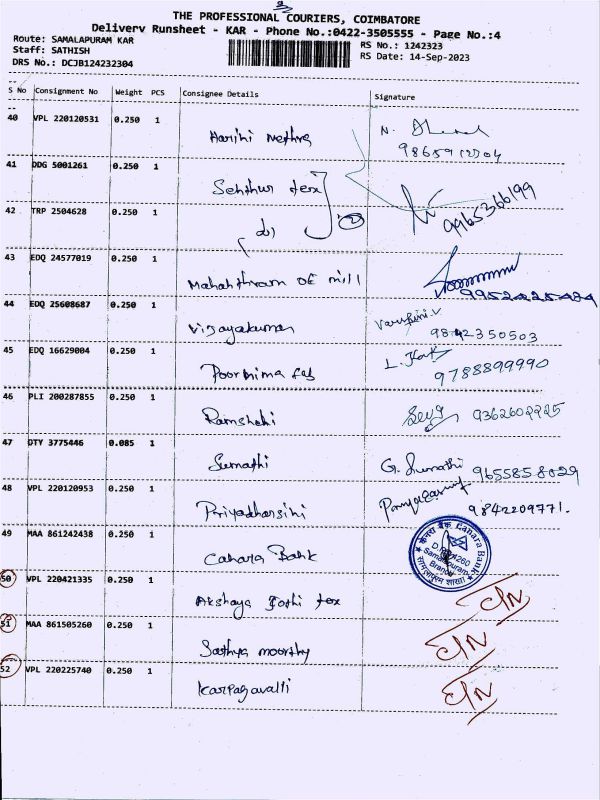 THE PROFESSIONAL COURIERS, COIMBATORE
Delivery Runsheet - KAR - Phone No.:0422-3505555 - Page No.:4
Route: SAMALAPURAM KAR
Staff: SATHISH
DRS No.: DCJB124232304
RS No.: 1242323
RS Date: 14-Sep-2023
S No Consignment No Weight PCS Consignee Details Signature
40 VPL 220120531 0.250 1 Harini Nethra
41 DDG 5001261 0.250 1 Senthur tex 9965366199
42 TRP 2504628 0.250 1 do 2
43 EDQ 24577019 0.250 1 OE mill
44 EDQ 25608687 0.250 1 Vijayakumar 9842350503
45 EDQ 16629004 0.250 1 Poornima 9788899990
46 PLI 200287855 0.250 1 9362602225
47 DTY 3775446 0.085 1 Sumathi G. Sumathi 9655858029
48 VPL 220120953 0.250 1 Priyadharsini 9842209771.
49 MAA 861242438 0.250 1 Canara Bank
केनरा बैंक Canara Bank
Samalapuram
Branch
50 VPL 220421335 0.250 1 Akshaya Jothi tex C/N
51 MAA 861505260 0.250 1 Sathya moorthy C/N
52 VPL 220225740 0.250 1 Karpagavalli C/N